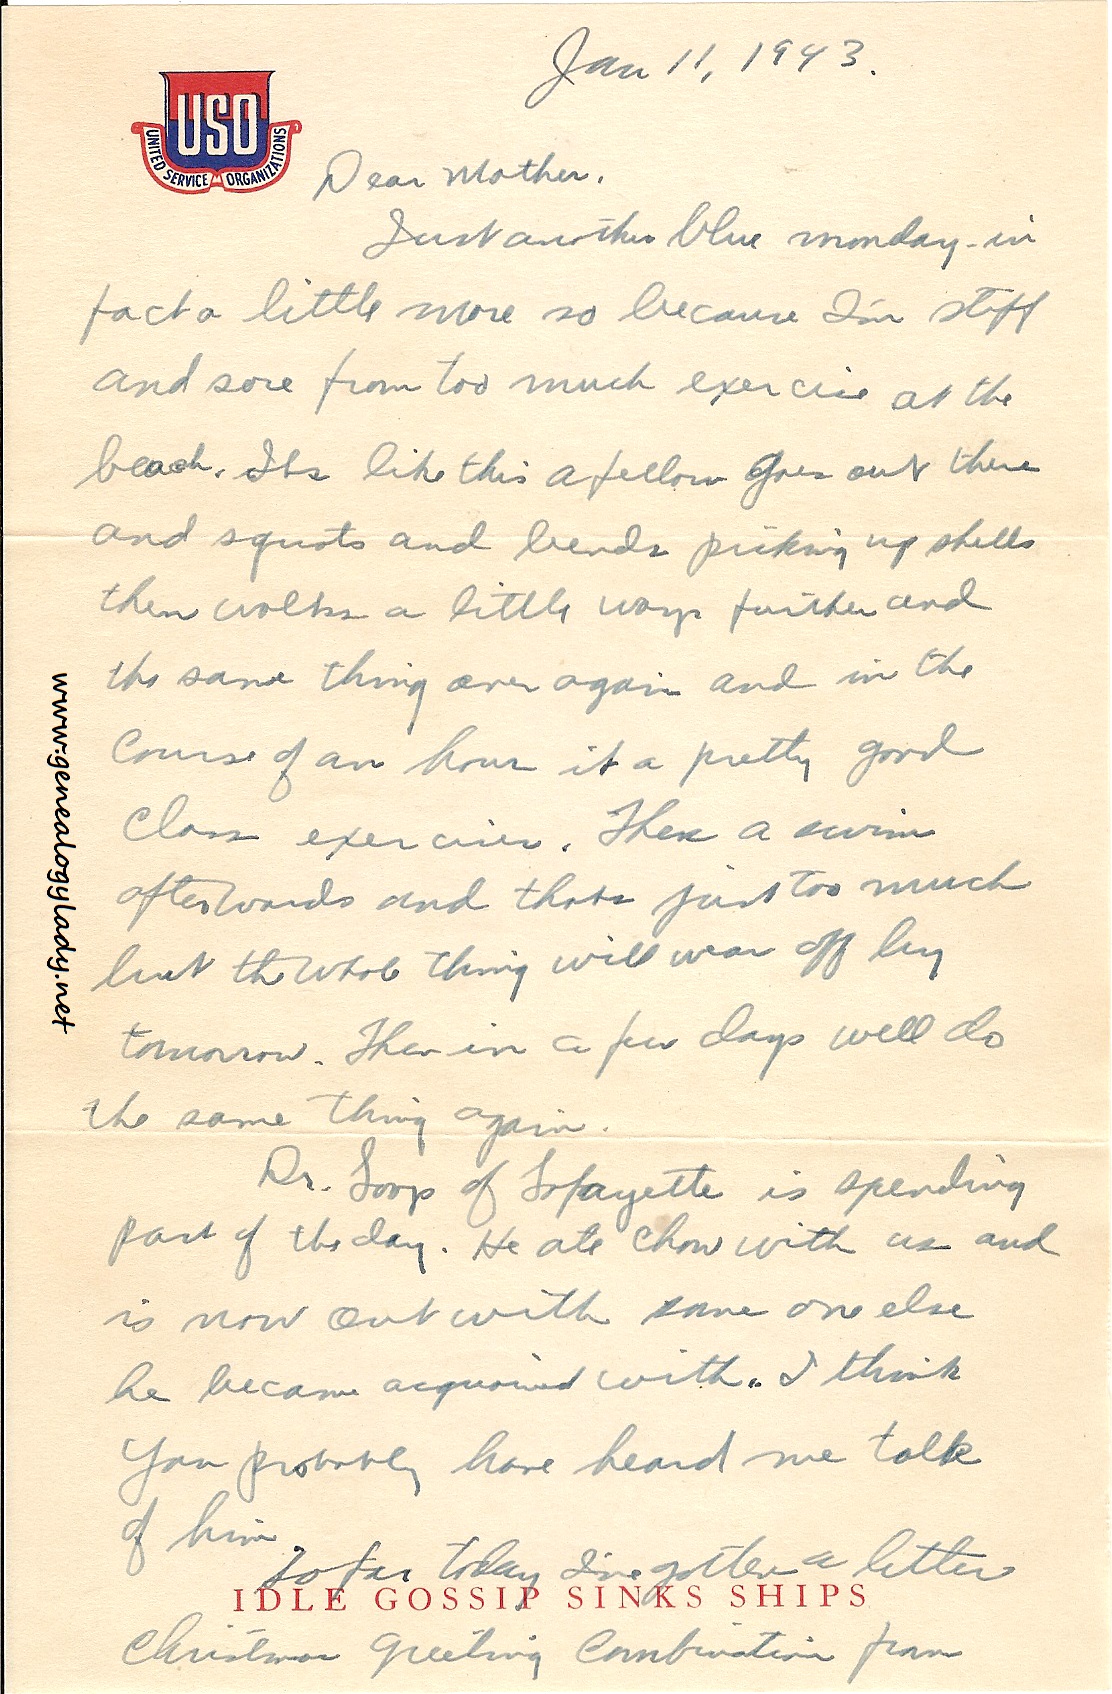 Jan 11, 1943.
USO
UNITED SERVICE ORGANIZATIONS
Dear Mother.
Just another blue monday - in
fact a little more so because I'm stiff
and sore from too much exercise at the
beach. Its like this a fellow goes out there
and squats and bends picking up shells
then walks a little ways further and
the same thing over again and in the
course of an hour it a pretty good
class exercise. Then a swim
afterwards and thats just too much
but the whole thing will wear off by
tomorrow. Then in a few days well do
the same thing again.
Dr. Loop of Lafayette is spending
part of the day. He ate chow with us and
is now out with some one else
he became acquainted with. I think
you probably have heard me talk
of him.
So far today I've gotten a letter
IDLE GOSSIP SINKS SHIPS
Christmas Greeting Combination from
www.genealogylady.net